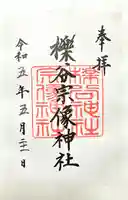 奉拝
櫟谷宗像神社
令和五年五月二十一日